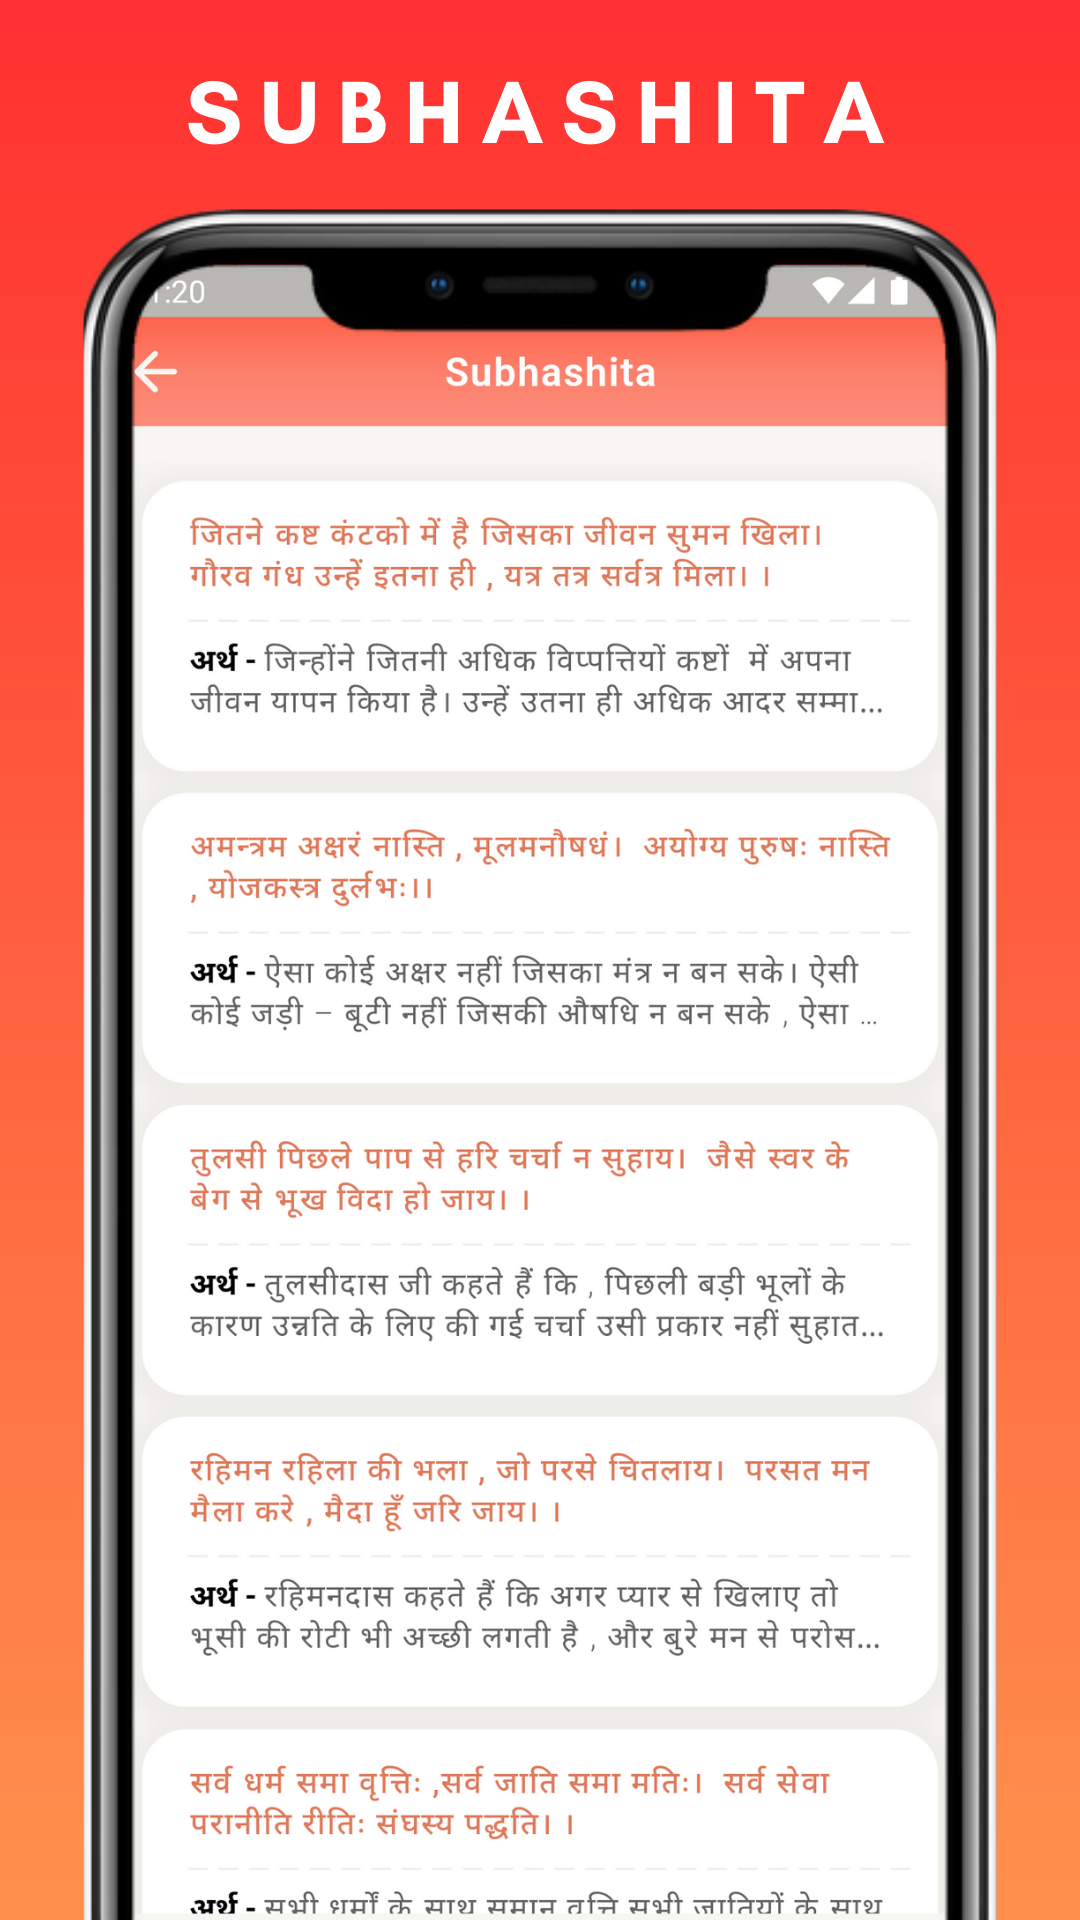 SUBHASHITA
:20
Subhashita
जितने कष्ट कंटको में है जिसका जीवन सुमन खिला।
गौरव गंध उन्हें इतना ही , यत्र तत्र सर्वत्र मिला। ।
अर्थ - जिन्होंने जितनी अधिक विप्पत्तियों कष्टों में अपना
जीवन यापन किया है। उन्हें उतना ही अधिक आदर सम्मा...
अमन्त्रम अक्षरं नास्ति , मूलमनौषधं। अयोग्य पुरुषः नास्ति
, योजकस्त्र दुर्लभः।।
अर्थ - ऐसा कोई अक्षर नहीं जिसका मंत्र न बन सके। ऐसी
कोई जड़ी – बूटी नहीं जिसकी औषधि न बन सके , ऐसा ...
तुलसी पिछले पाप से हरि चर्चा न सुहाय। जैसे स्वर के
बेग से भूख विदा हो जाय। ।
अर्थ - तुलसीदास जी कहते हैं कि , पिछली बड़ी भूलों के
कारण उन्नति के लिए की गई चर्चा उसी प्रकार नहीं सुहात...
रहिमन रहिला की भला , जो परसे चितलाय। परसत मन
मैला करे , मैदा हूँ जरि जाय। ।
अर्थ - रहिमनदास कहते हैं कि अगर प्यार से खिलाए तो
भूसी की रोटी भी अच्छी लगती है , और बुरे मन से परोस...
सर्व धर्म समा वृत्तिः ,सर्व जाति समा मतिः। सर्व सेवा
परानीति रीतिः संघस्य पद्धति। ।
अर्थ - सभी धर्मों के साथ समान वृत्ति सभी जातियों के साथ